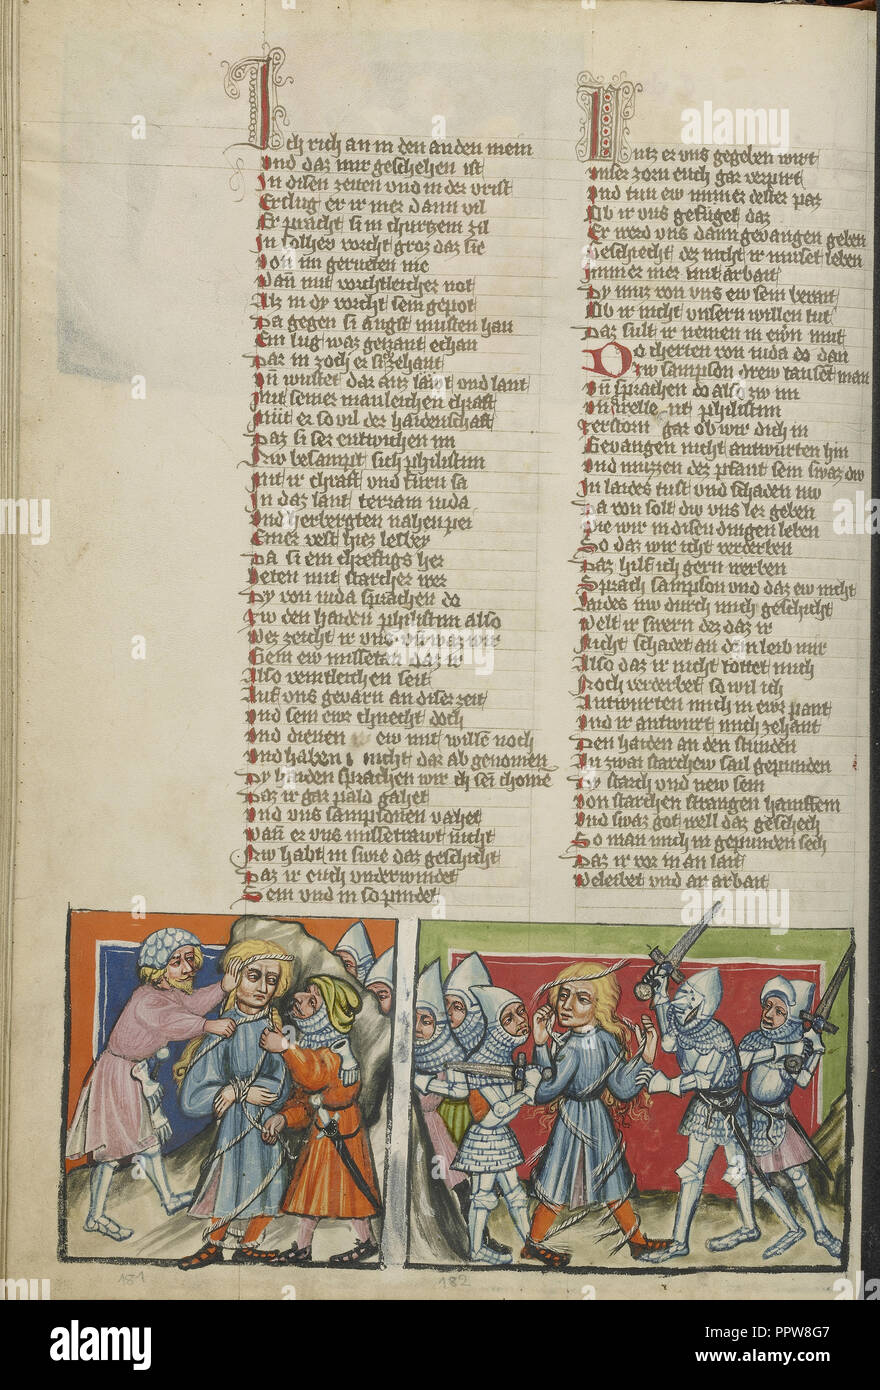 Ich rich an in den anden mein
Und daz mir geschehen ist
In disen zeiten und in der vrist
Er slug er ir mer dann vil
Er pracht si in churtzem zil
In solher vorcht groz daz sie
Von im geruten nie
Dann mit vorchtleicher not
Alz in dy vorcht sein gepot
Da gegen si angst musten han
Ein lug waz genant echan
Dar in zoch er si zehant
Und wustet dar auz läwt und lant
Mit seiner manleichen chraft
Mit er so vil der haidenschaft
Daz si sez entwichen im
Nw besampt sich philistim
Mit ir chraft und furn sa
In daz lant terram iuda
Und herbergten nahen pei
Einer velt hiez lechey
Da si ein chreftigs her
Heten mit starcher wer
Dy von iuda sprachen do
Zw den haiden philistim also
Wez zeicht ir uns und waz wir
Gein ew missetan daz ir
Also veintleichen seit
Auf uns gevarn an diser zeit
Und sein ewr chnecht doch
Und dienen ew mit willen noch
Und haben nicht dar ab genomen
Dy haiden sprachen wir sei chome
Daz ir gar pald gahet
Und uns sampsonen vahet
Wann er uns missetrawt nicht
Nw habt in swie daz geschicht
Daz ir euch underwindet
Sein und in so pindet
Untz er uns gegeben wirt
Unser zorn euch gar verpirt
Und tun ew immer dester paz
Ob ir uns gefuget daz
Er werd uns dann gevangen geben
Geschecht dez nicht ir muset leben
Immer mer mit arbait
Dy muz von uns ew sein berait
Ob ir nicht unsern willen tut
Daz sult ir nemen in ewrn mut
Do cherten von iuda do dan
Zw sampson drew tauset man
Und sprachen do also zw im
Philistim
Zerstorn gar ob wir dich in
Gevangen nicht antwurten hin
Und muzzen dez pfant sein swaz dw
In laides tust und schaden nw
Da von solt dw uns ler geben
Wie wir in disen dingen leben
So daz wir icht verderben
Daz hilf ich gern werben
Sprach sampson und daz ew nicht
Laides nw durch mich geschicht
Welt ir swern dez daz ir
Nicht schadet an dem leib mir
Also daz ir nicht tottet mich
Noch verderbet so wil ich
Antwurten mich in ewr pant
Und ir antwurt mich zehant
Den haiden an den stunden
In zwai starchew sail gepunden
Dy starch und new sein
Von starchen strangen hanffein
Und swaz got well daz geschech
So man mich in gepunden sech
Daz ir vor in an lait
Beleibet und ar arbait
181
182
alamy
Image ID: PPW8G7
www.alamy.com